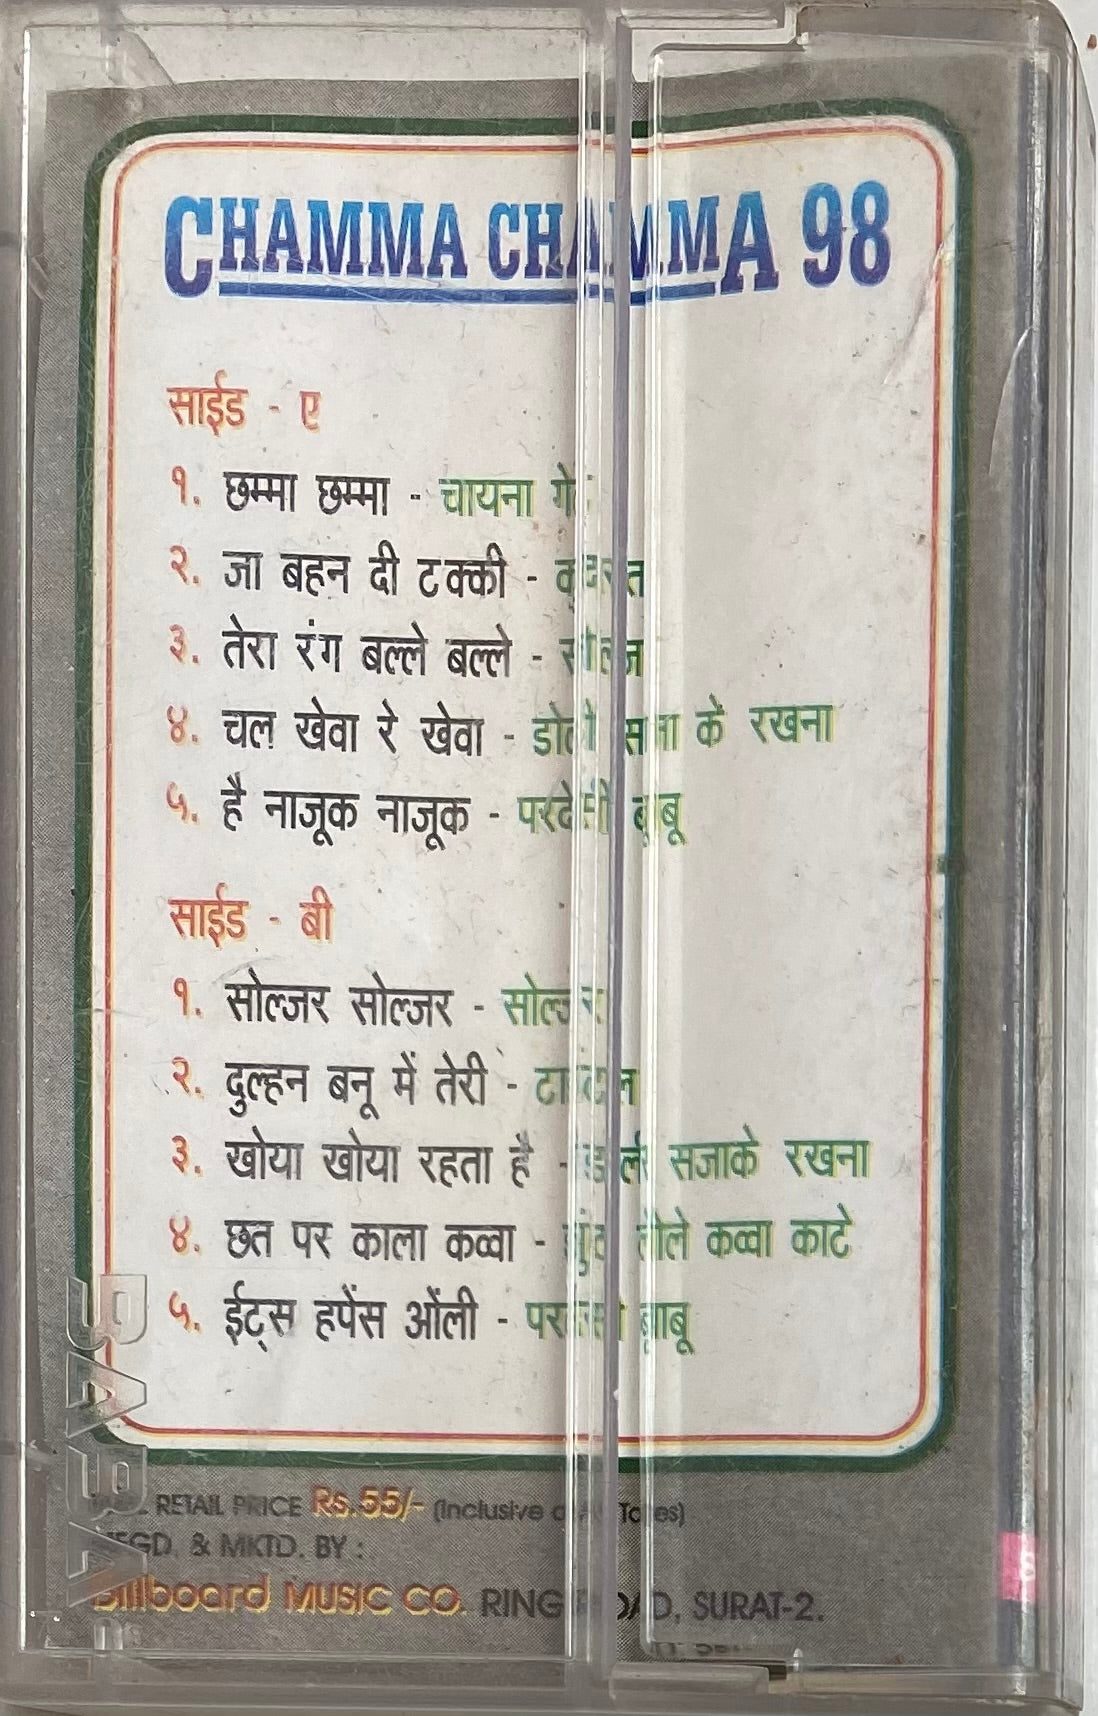 CHAMMA CHAMMA 98
साईड - ए
१. छम्मा छम्मा - चायना
२. जा बहन दी टक्की -
३. तेरा रंग बल्ले बल्ले -
४. चल खेवा रे खेवा - डोली सजा के रखना
५. है नाजूक नाजूक - परदेसी बाबू
साईड - बी
१. सोल्जर सोल्जर - सोल्जर
२. दुल्हन बनू में तेरी -
३. खोया खोया रहता है - सजाके रखना
४. छत पर काला कव्वा - कव्वा काटे
५. ईट्स हपेंस ओंली - परदेसी बाबू
RETAIL PRICE Rs.55/- (Inclusive of All Taxes)
MFGD. & MKTD. BY :
Billboard MUSIC CO. RING ROAD, SURAT-2.